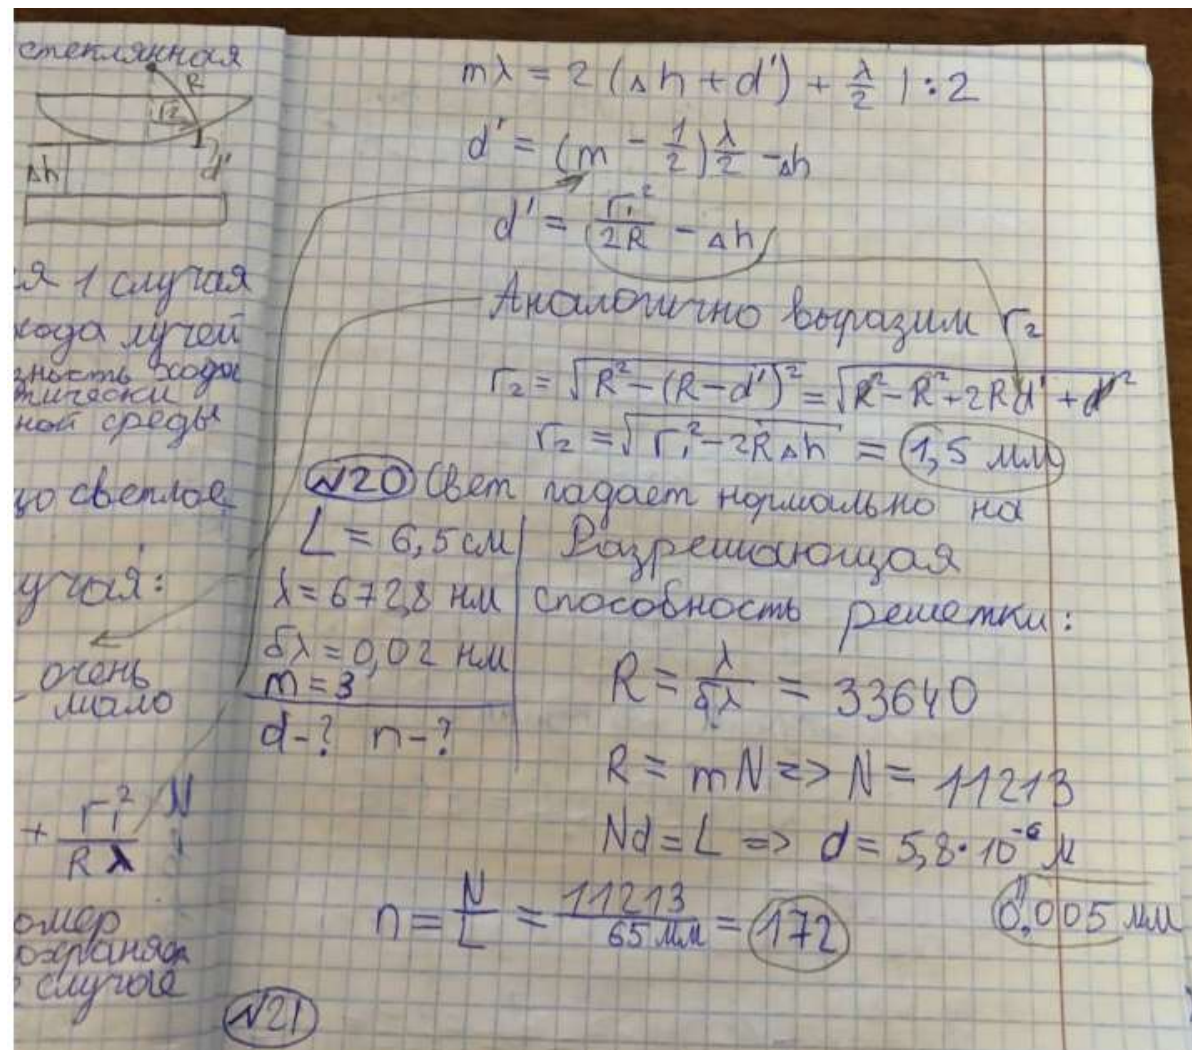 стеклянная
R
r₂
Δh
d'
я 1 случая
хода лучей
зность хода
птически
ной среды
цо светлое
учая:
очень
мало
+ r₁²/Rλ
N
омер
охраняя
случае
mλ = 2 (Δh + d') + λ/2 | : 2
d' = (m - 1/2) λ/2 - Δh
d' = r₁²/2R - Δh
Аналогично выразим r₂
r₂ = √(R² - (R - d')²) = √(R² - R² + 2Rd' + d'²)
r₂ = √(r₁² - 2RΔh) = 1,5 мм
№20 Свет падает нормально на
L = 6,5 см
λ = 672,8 нм
δλ = 0,02 нм
m = 3
d - ? n - ?
Разрешающая
способность решетки:
R = λ/δλ = 33640
R = mN => N = 11213
Nd = L => d = 5,8 · 10⁻⁶ м
0,005 мм
n = N/L = 11213/65 мм = 172
№21